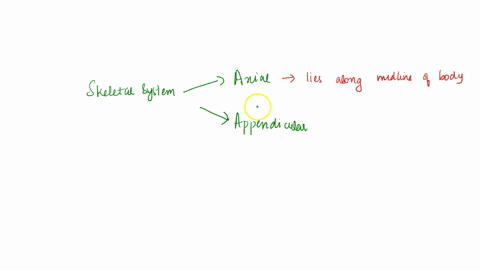 Skeletal System → Axial → lies along midline of body
→ Appendicular